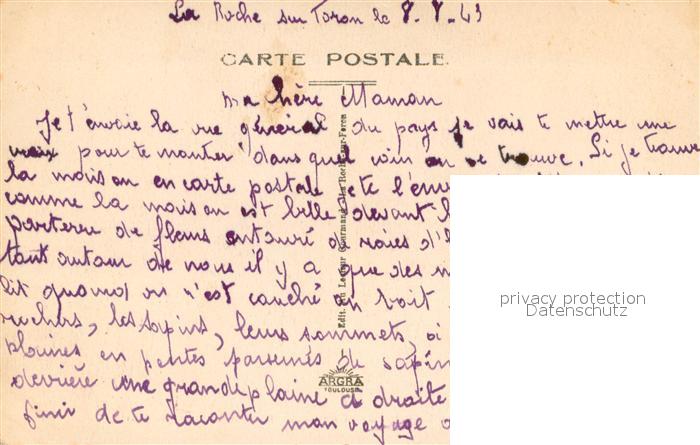 La Roche sur Foron le 8.8.43
CARTE POSTALE
ma chère Maman
Je t'envoie la vue général du pays je vais te mettre une
croix pour te montrer dans quel coin on se trouve. Si je trouve
la maison en carte postale je te l'env
comme la maison est belle devant l
parterre de fleurs entouré de
tout autour de nous il y a que des m
lit quand on n'est couché on voit
rochers, les sapins, leurs sommets,
plaines en pentes parsemés de sapin
derrière une grande plaine à droite
finir de te raconter mon voyage
Edit. du Lecteur Gourmand, La Roche-sur-Foron
ARGRA
TOULOUSE
privacy protection
Datenschutz